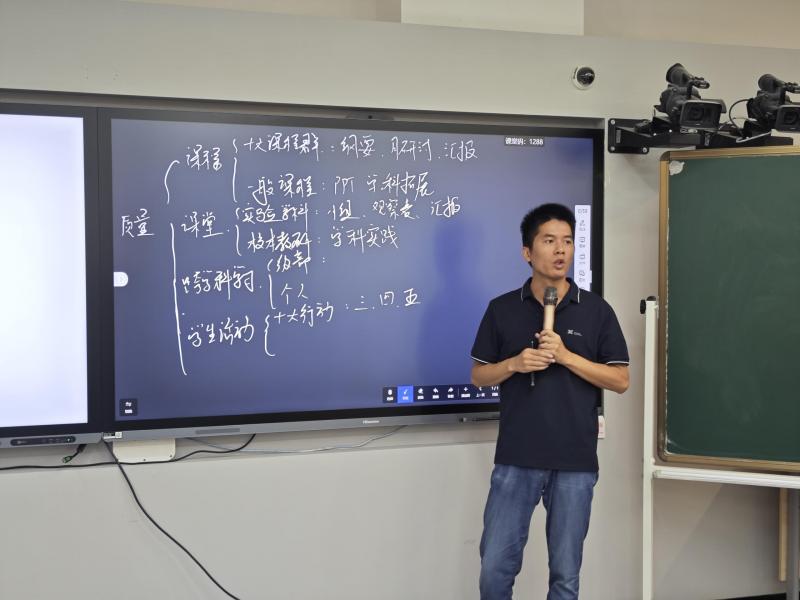 课堂码：1288
课程 十大课程群：纲要、月研讨、汇报
一般课程：PPT 学科拓展
质量
课堂 实验学科：小组、观察表、汇报
校本教研：学科实践
跨学科学习
个人
学生活动 十大行动：三、四、五
Hisense